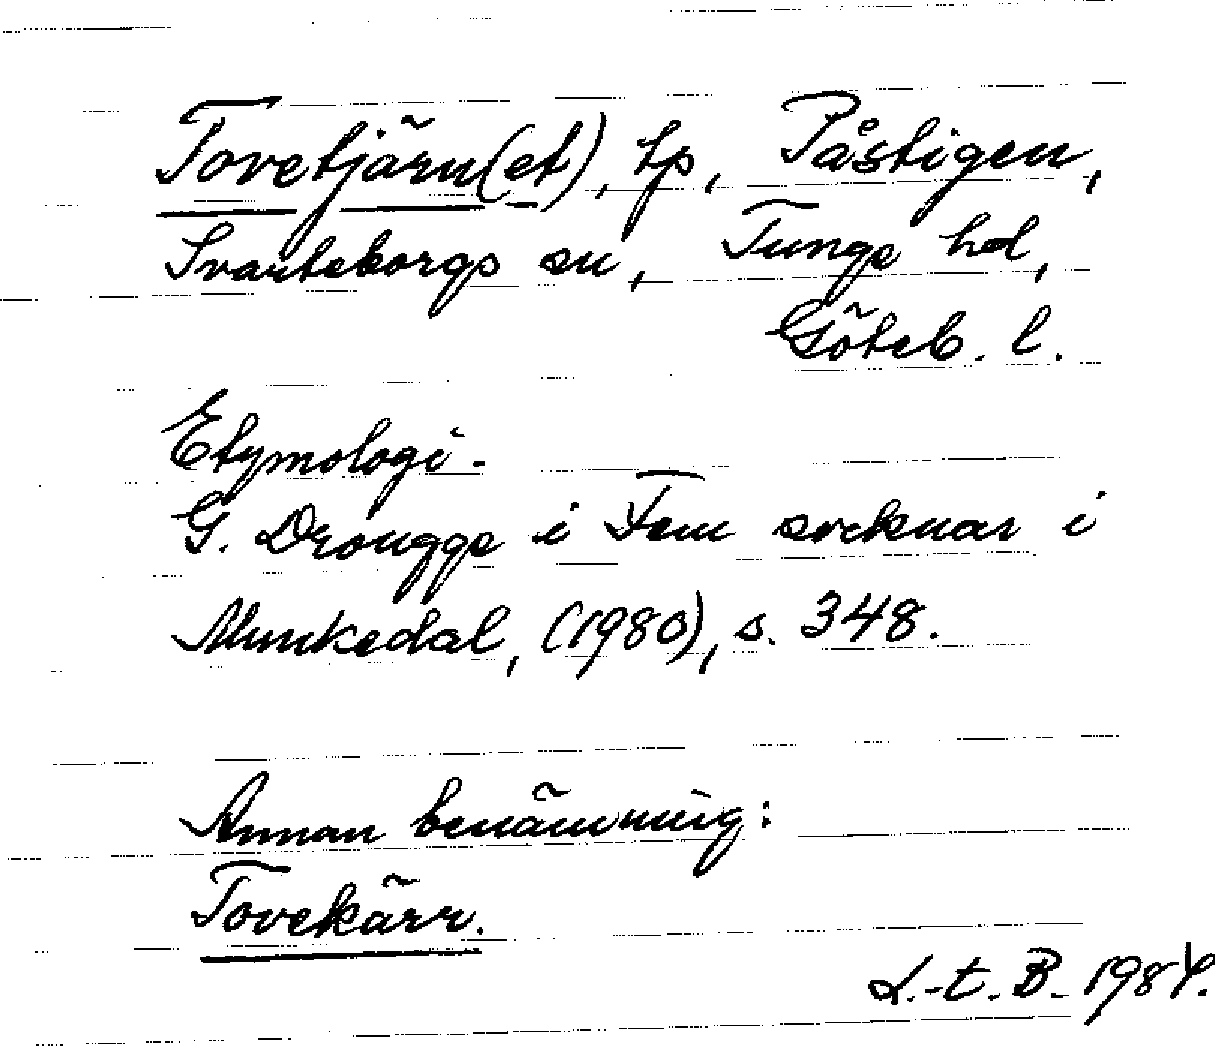 Tovetjärn(et), tp, Påstigen,
Svarteborgs sn, Tunge hd,
Göteb. l.
Etymologi.
G. Drougge i Fem socknar i
Munkedal, (1980), s. 348.
Annan benämning:
Tovekärr.
L.-t. B. 1984.